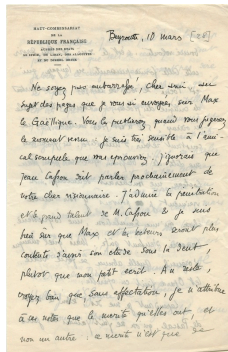 HAUT-COMMISSARIAT
DE LA
RÉPUBLIQUE FRANÇAISE
Beyrouth, 10 mars [28]
Ne soyez pas embarrassé, cher ami, des
sept pages que je vous ai envoyées, sur Max
le Gaëllique. Vous les publierez quand vous jugerez
le moment venu. Je suis très sensible à l'ami-
cal scrupule que vous éprouvez. J'ignorais que
Jean Cassou doit parler prochainement de
notre cher visionnaire. J'admire la pénétration
et le grand talent de M. Cassou & je suis
sûr que Max et les lecteurs seront plus
contents d'avoir son étude sous la dent
plutôt que mon petit écrit. Au reste,
croyez bien que, sans affectation, je n'attribue
à ces notes que le mérite qu'elles ont, et
non un autre : ce mérite n'est que de